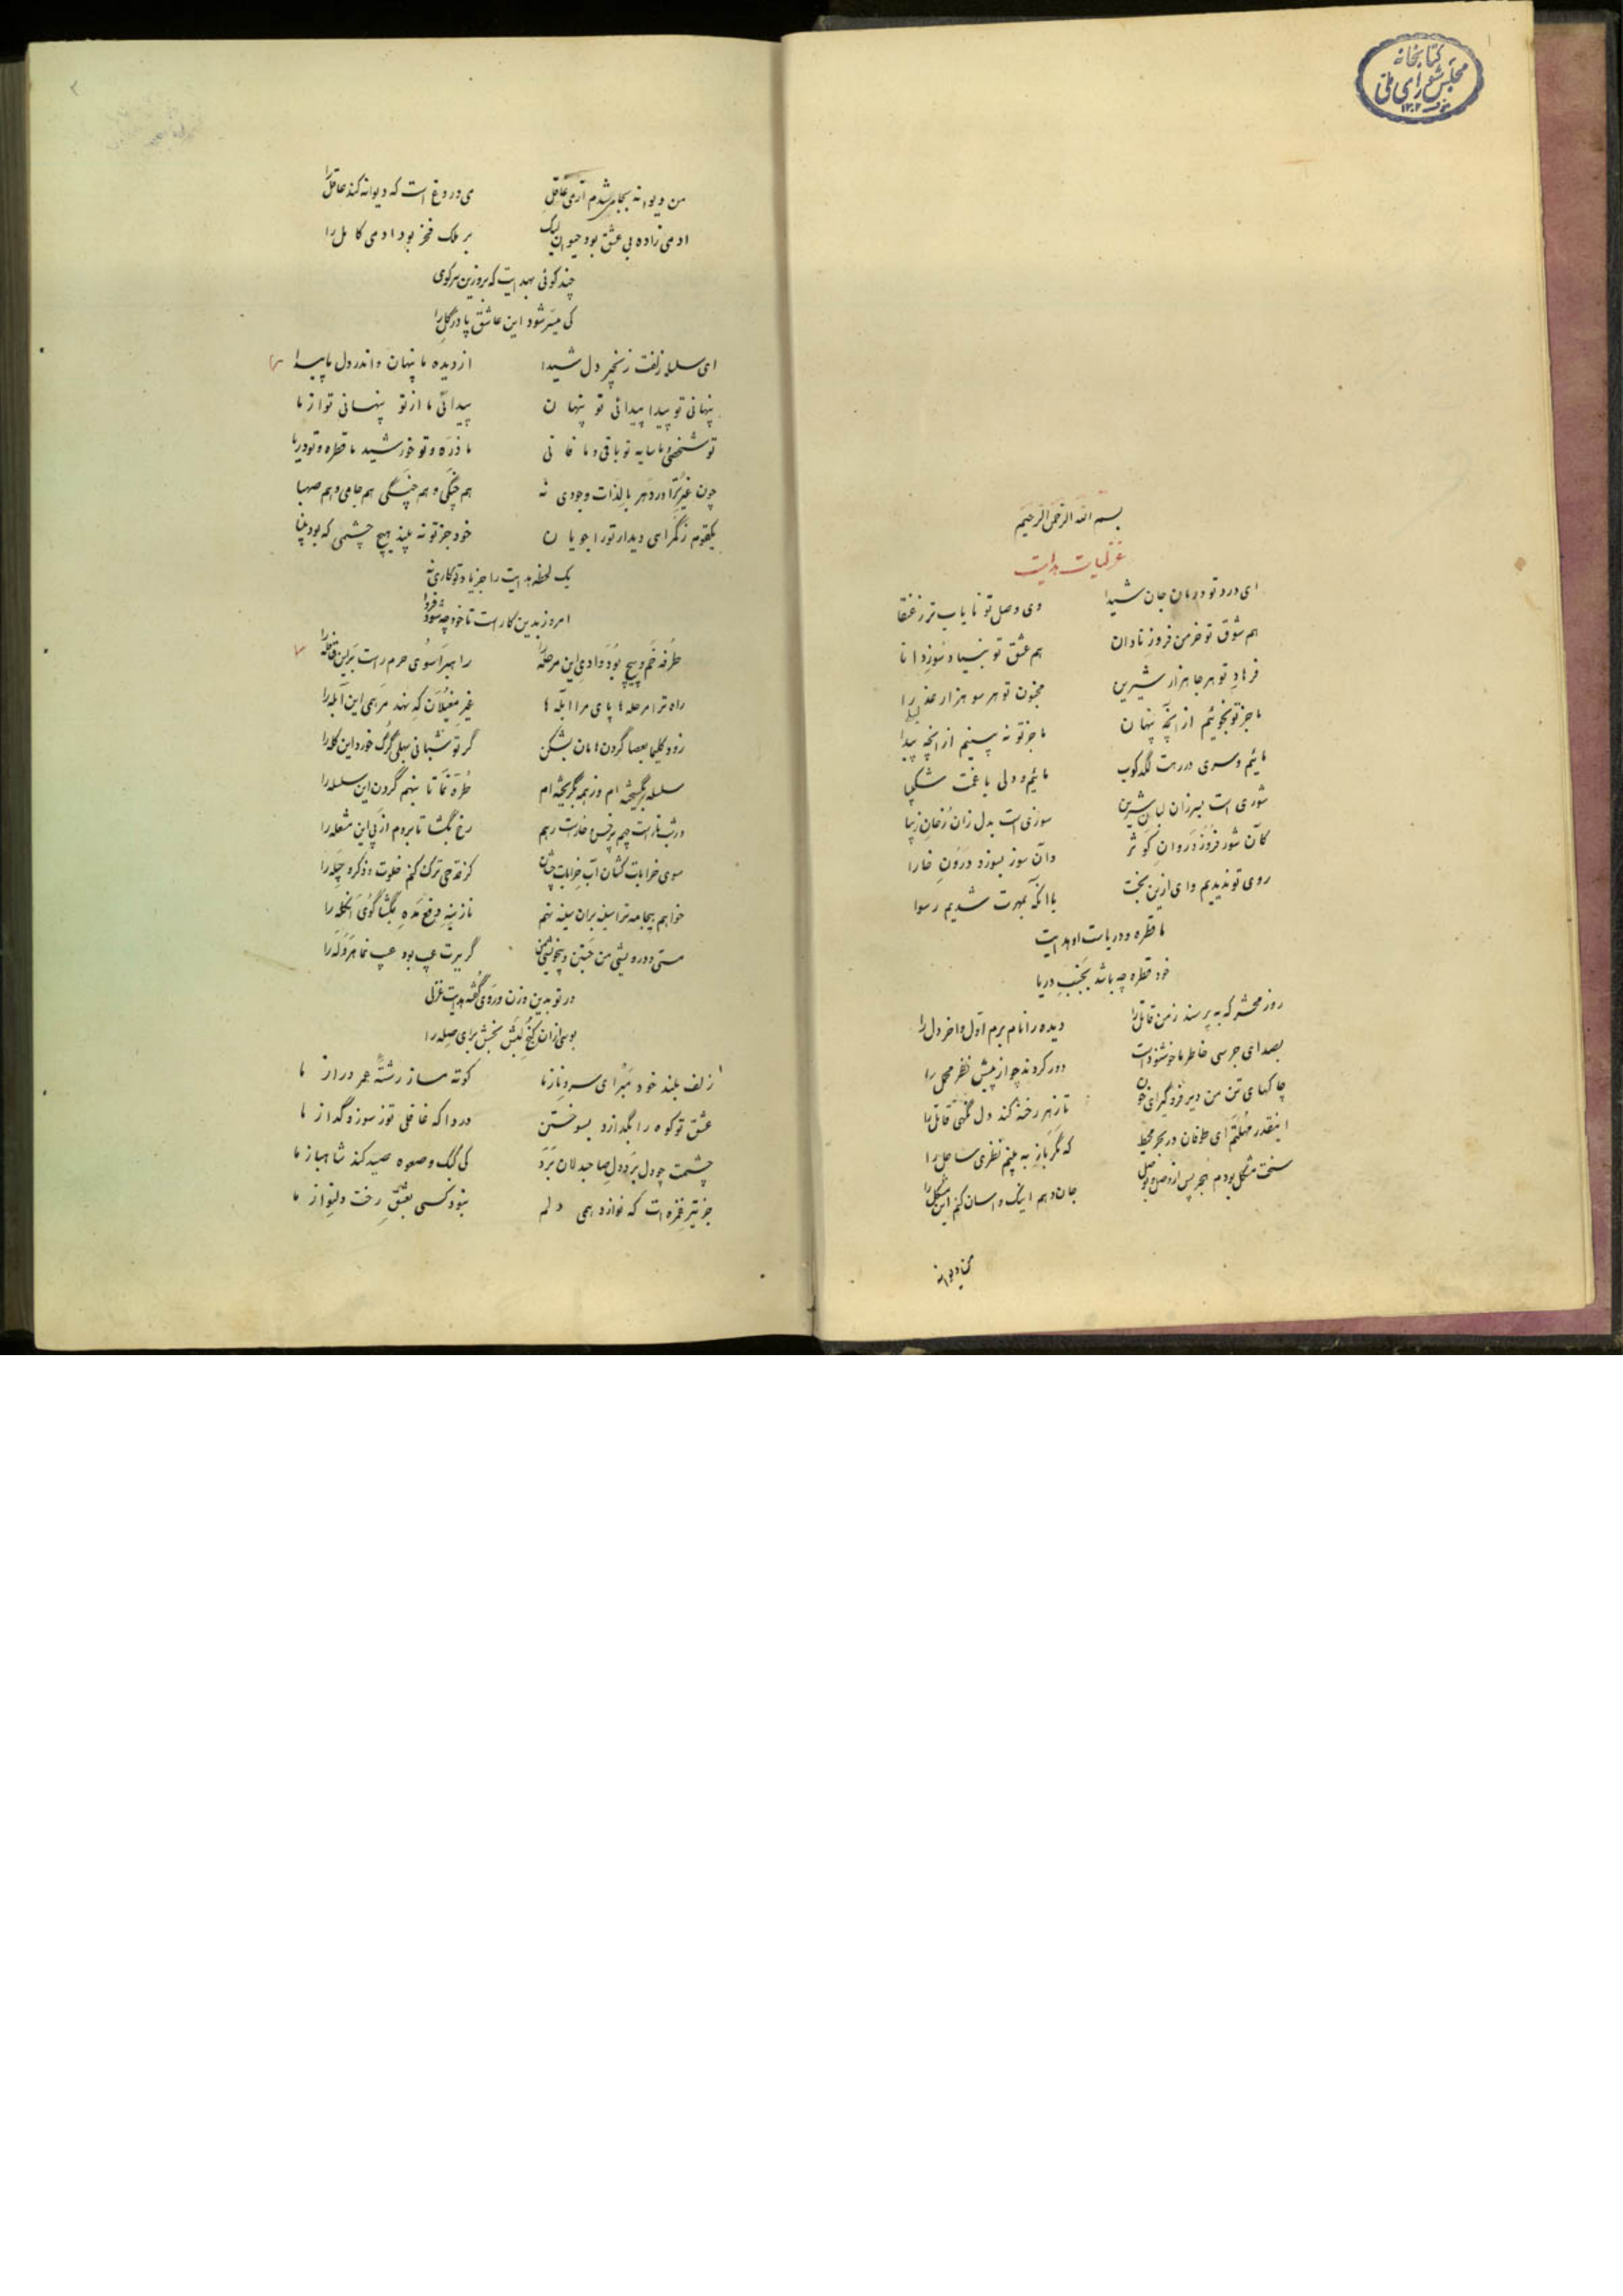 کتابخانه
مجلس شورای ملی
۱۳۰۲
بسم الله الرحمن الرحیم
غزلیات هدایت
ای درد تو درمان جان شیدا وی وصل تو نایاب تر ز عنقا
هم شوق تو خرمن فروز نادان هم عشق تو بنیاد سوز دانا
فرهاد تو هر جا هزار شیرین مجنون تو هر سو هزار عذرا
لیلا
ما جز تو نجوئیم از آنچه پنهان ما جز تو نه بینیم از آنچه پیدا
مائیم و سری در رهت لگدکوب مائیم و دلی با غمت شکیبا
شوری است بسر زان لبان شیرین سوزی است بدل زان رخان زیبا
کآن شور فزوز در روان کوثر وآن سوز بسوزد درون خارا
روی تو ندیدیم وای ازین بخت با آنکه بمهرت شدیم رسوا
ما قطره و دریاست او هدایت
خود قطره چه باشد بجنب دریا
روز محشر که به پرسند ز من قاتل را دیده را نام برم اول و آخر دل را
بصدای جرسی خاطر ما خوشنود است دور کردند چو از پیش نظر محمل را
چاکهای تن من دیر فرو گیر ای خون تا ز هر رخنه کند دل نگهی قاتل را
اینقدر مهلتم ای طوفان در بحر محیط که مگر باز به بینم نظری ساحل را
سخت مشکل بودم هجر پس از وصل و بوصل جان دهم اینک و اسان کنم این مشکل را
من دیوانه
من دیوانه بجامی شدم از می عاقل می دروغ است که دیوانه کند عاقل را
ادمی زاده بی عشق بود حیوان لیک بر ملک فخر بود ادمی کامل را
چند گوئی بهدایت که برو زین سر کوی
کی میسر شود این عاشق پا در گل را
ای سلسله زلفت زنجیر دل شیدا از دیده ما پنهان و اندر دل ما پیدا
پنهانی تو پیدا پیدائی تو پنهان پیدائی ما از تو پنهانی تو از ما
تو شخصی و ما سایه تو باقی و ما فانی ما ذره و تو خورشید ما قطره و تو دریا
چون غیر ترا در دهر بالذات وجودی نه هم چنگی و هم چنگی هم جامی و هم صهبا
یکقوم ز گمراهی دیدار تو را جویان خود جز تو نه بیند هیچ چشمی که بود بینا
یک لحظه هدایت را جز با تو کاری نه
امروز بدین کار است تا خود چه شود فردا
طرفه خم و پیچ بود وادی این مرحله را راهبرا سوی حرم راست بر این قافله را
راه ترا مرحله ها پای مرا آبله ها غیر مغیلان که نهد مرهمی این آبله را
زود کلیما بعصا گردن هامان بشکن گر تو شبانی بهلی گرگ خورد این گله را
سلسله بگسیخته ام وز همه بگریخته ام طره نما تا بنهم گردن این سلسله را
ورشب تار است چهم پر خس و خار است رهم رخ بگشا تا بروم از پی این مشعله را
سوی خرابات کشان آب خرابات چشان کز قدحی ترک کنم خلوت و ذکر و چله را
خواهم بیجامه ترا سینه بران سینه نهم
مستی و درویشی من جستن و بیخویشی من گر برت عیب بود عیب نما هروله را
در تو بدین وزن و روی گفته هدایت غزلی
بوسی ازان کنج لبش بخش برای صله را
زلف بلند خود مبر ای سرو ناز ما کوته مساز رشته عمر دراز ما
عشق تو کوه را بگدازد بسوختن دردا که غافلی تو ز سوز و گداز ما
چشمت چو دل برد دل صاحبدلان برد کی کبک و صعوه صید کند شاهباز ما
جز تیر غمزه ات که نوازد همی دلم نبود کسی بعشق رخت دلنواز ما